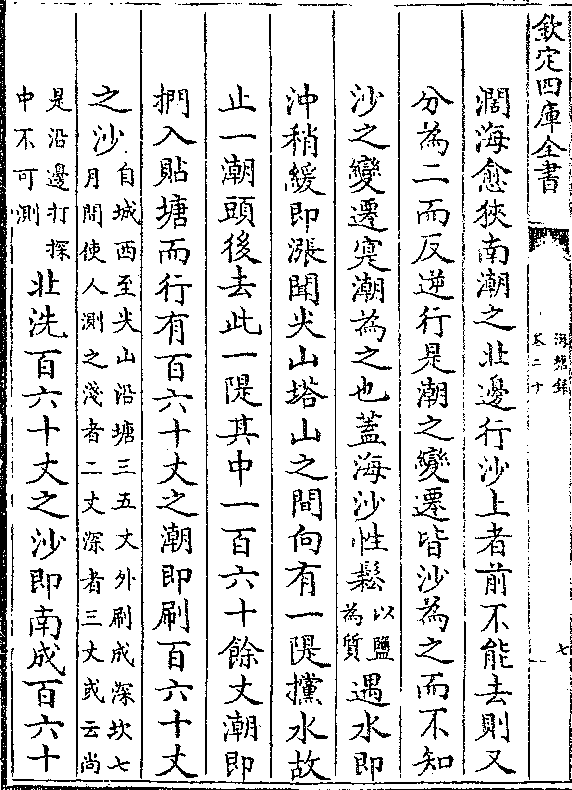 欽定四庫全書
海塘錄
卷二十
七
濶海愈狹南潮之北邊行沙上者前不能去則又
分為二而反逆行是潮之變遷皆沙為之而不知
沙之變遷寔潮為之也蓋海沙性鬆以鹽為質遇水即
沖稍緩即漲聞尖山塔山之間向有一隄攩水故
止一潮頭後去此一隄其中一百六十餘丈潮即
捫入貼塘而行有百六十丈之潮即刷百六十丈
之沙自城西至尖山沿塘三五丈外刷成深坎七月間使人測之淺者二丈深者三丈或云尚
是沿邊打探中不可測北洗百六十丈之沙即南成百六十